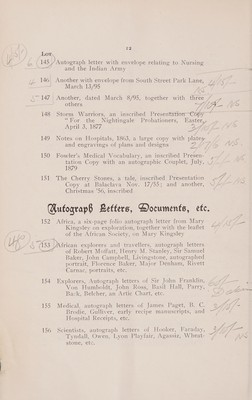 12
Lot
145 Autograph letter with envelope relating to Nursing
and the Indian Army
146 Another with envelope from South Street Park Lane,
March 13/95
147 Another, dated March 8/95, together with three
others
148 Storm Warriors, an inscribed Presentation Copy
"For the Nightingale Probationers, Easter,
April 3, 1877
149 Notes on Hospitals, 1863, a large copy with plates
and engravings of plans and designs
150 Fowler's Medical Vocabulary, an inscribed Presen-
tation Copy with an autographic Couplet, July,
1879
151 The Cherry Stones, a tale, inscribed Presentation
Copy at Balaclava Nov. 17/55; and another,
Christmas '56, inscribed
Autograph Letters, Documents, etc.
152 Africa, a six-page folio autograph letter from Mary
Kingsley on exploration, together with the leaflet
of the African Society, on Mary Kingsley
153 African explorers and travellers, autograph letters
of Robert Moffatt, Henry M. Stanley, Sir Samuel
Baker, John Campbell, Livingstone, autographed
portrait, Florence Baker, Major Denham, Rivett
Carnac, portraits, etc.
154 Explorers, Autograph letters of Sir John Franklin,
Von Humboldt, John Ross, Basil Hall, Parry,
Back, Belcher, an Artic Chart, etc.
155 Medical, autograph letters of James Paget, B. C.
Brodie, Gulliver, early recipe manuscripts, and
Hospital Receipts, etc.
156 Scientists, autograph letters of Hooker, Faraday,
Tyndall, Owen, Lyon Playfair, Agassie, Wheat-
stone, etc.